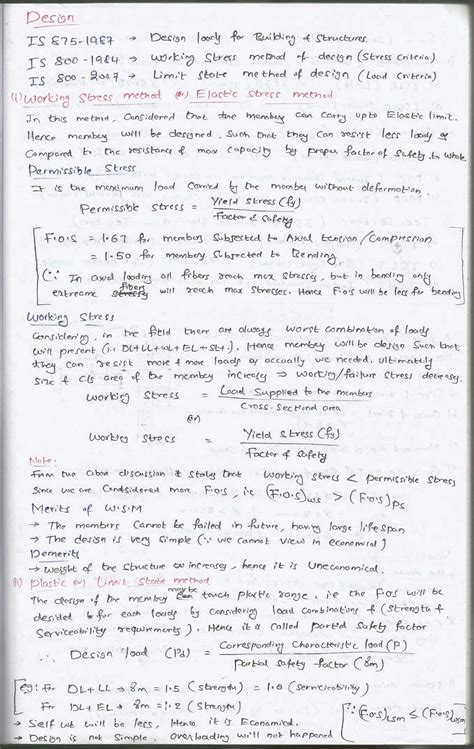 Design
IS 875-1987 → Design loads for Building & Structures
IS 800-1984 → working Stress method of design (Stress criteria)
IS 800-2007 → Limit state method of design (Load Criteria)
(i) Working Stress method (or) Elastic stress method
In this method, Considered that the member can carry upto Elastic limit.
Hence member will be designed, Such that they can resist less loads
Compared to the resistance of max capacity by proper factor of safety, to whole
Permissible Stress
It is the maximum load carried by the member without deformation.
Permissible Stress = Yield Stress (fy)
Factor of Safety
F.O.S = 1.67 for members Subjected to Axial tension/Compression
= 1.50 for members Subjected to Bending
(∵ In axial loading all fibers reach max stresses, but in bending only
extreame fibers will reach max stresses. Hence F.O.S will be less for bending)
Working Stress
Considering, in the field there are always worst combination of loads
will present (i.e DL+LL+WL+EL+SL+.). Hence member will be design Such that
they can resist more & more loads of accually we needed. Ultimately
size & c/s area of the member increases ⇒ working/failure stress decreases.
working Stress = Load Supplied to the members
Cross-Sectional area
(or)
Working Stress = Yield Stress (fy)
Factor of Safety
Note:
From two above discussion it states that working stress < permissible stress
Since we are Condsidered more F.O.S, i.e (F.O.S)ws > (F.O.S)PS
Merits of W.S.M
→ The members Cannot be failed in future, having large life span
→ The design is very simple (∵ we cannot view in economical)
Demerits
→ weight of the Structure increases, hence it is Uneconomical.
(ii) Plastic (or) Limit State method
The design of the member may be touch plastic range. i.e the FOS will be
decided for each loads by considering load combinations & (Strength &
Serviceability requirements). Hence it is called partial Safety factor
∴ Design load (Pd) = Corresponding Characteristic load (P)
Partial safety factor (γm)
eg: For DL+LL → γm = 1.5 (Strength) = 1.0 (Servicicability)
For DL+EL → γm = 1.2 (Strength)
→ Self wt will be less, Hence it is Economical. ∵ (F.O.S)LSM ≤ (F.O.S)WSM
→ Design is not Simple. Overloading will not happened